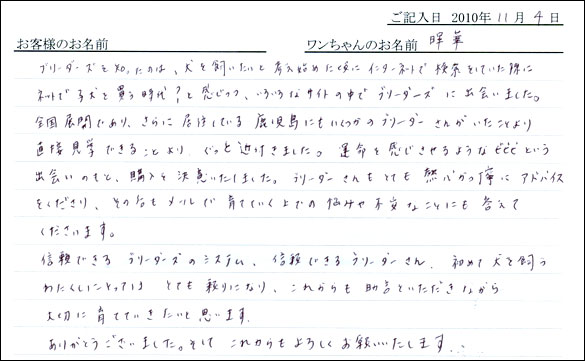 ご記入日 2010年 11月 4日
お客様のお名前 ワンちゃんのお名前 暉華
ブリーダーズを知ったのは、犬を飼いたいと考え始めた頃にインターネットで検索をしていた際に
ネットで子犬を買う時代?と感じつつ、いろいろなサイトの中でブリーダーズに出会いました。
全国展開であり、さらに居住している鹿児島にもいくつかのブリーダーさんがいたことより
直接見学できることより、ぐっと近付きました。運命を感じさせるようなビビビという
出会いのもと、購入を決意いたしました。ブリーダーさんもとても 丁寧にアドバイス
をくださり、その后もメールで育てていく上での悩みや不安なことにも答えて
くださいます。
信頼できるブリーダーズのシステム、信頼できるブリーダーさん、初めて犬を飼う
わたくしにとっては とても頼りになり、これからも助言をいただきながら
大切に育てていきたいと思います。
ありがとうございました。そして これからもよろしくお願いいたします。